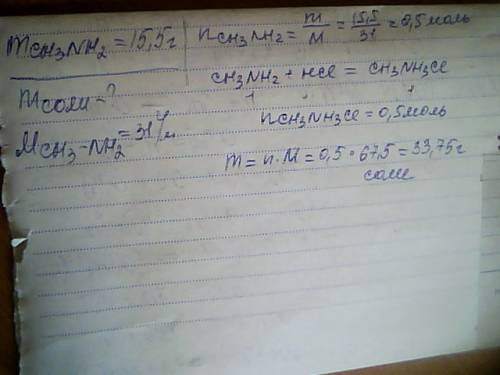 mCH₃NH₂ = 15,5г
m соли = ?
MCH₃-NH₂ = 31 г/м
nCH₃NH₂ = m/M = 15,5/31 = 0,5 моль
CH₃NH₂ + HCl = CH₃NH₃Cl
1 1 1
nCH₃NH₃Cl = 0,5 моль
m = n · M = 0,5 · 67,5 = 33,75 г
соли